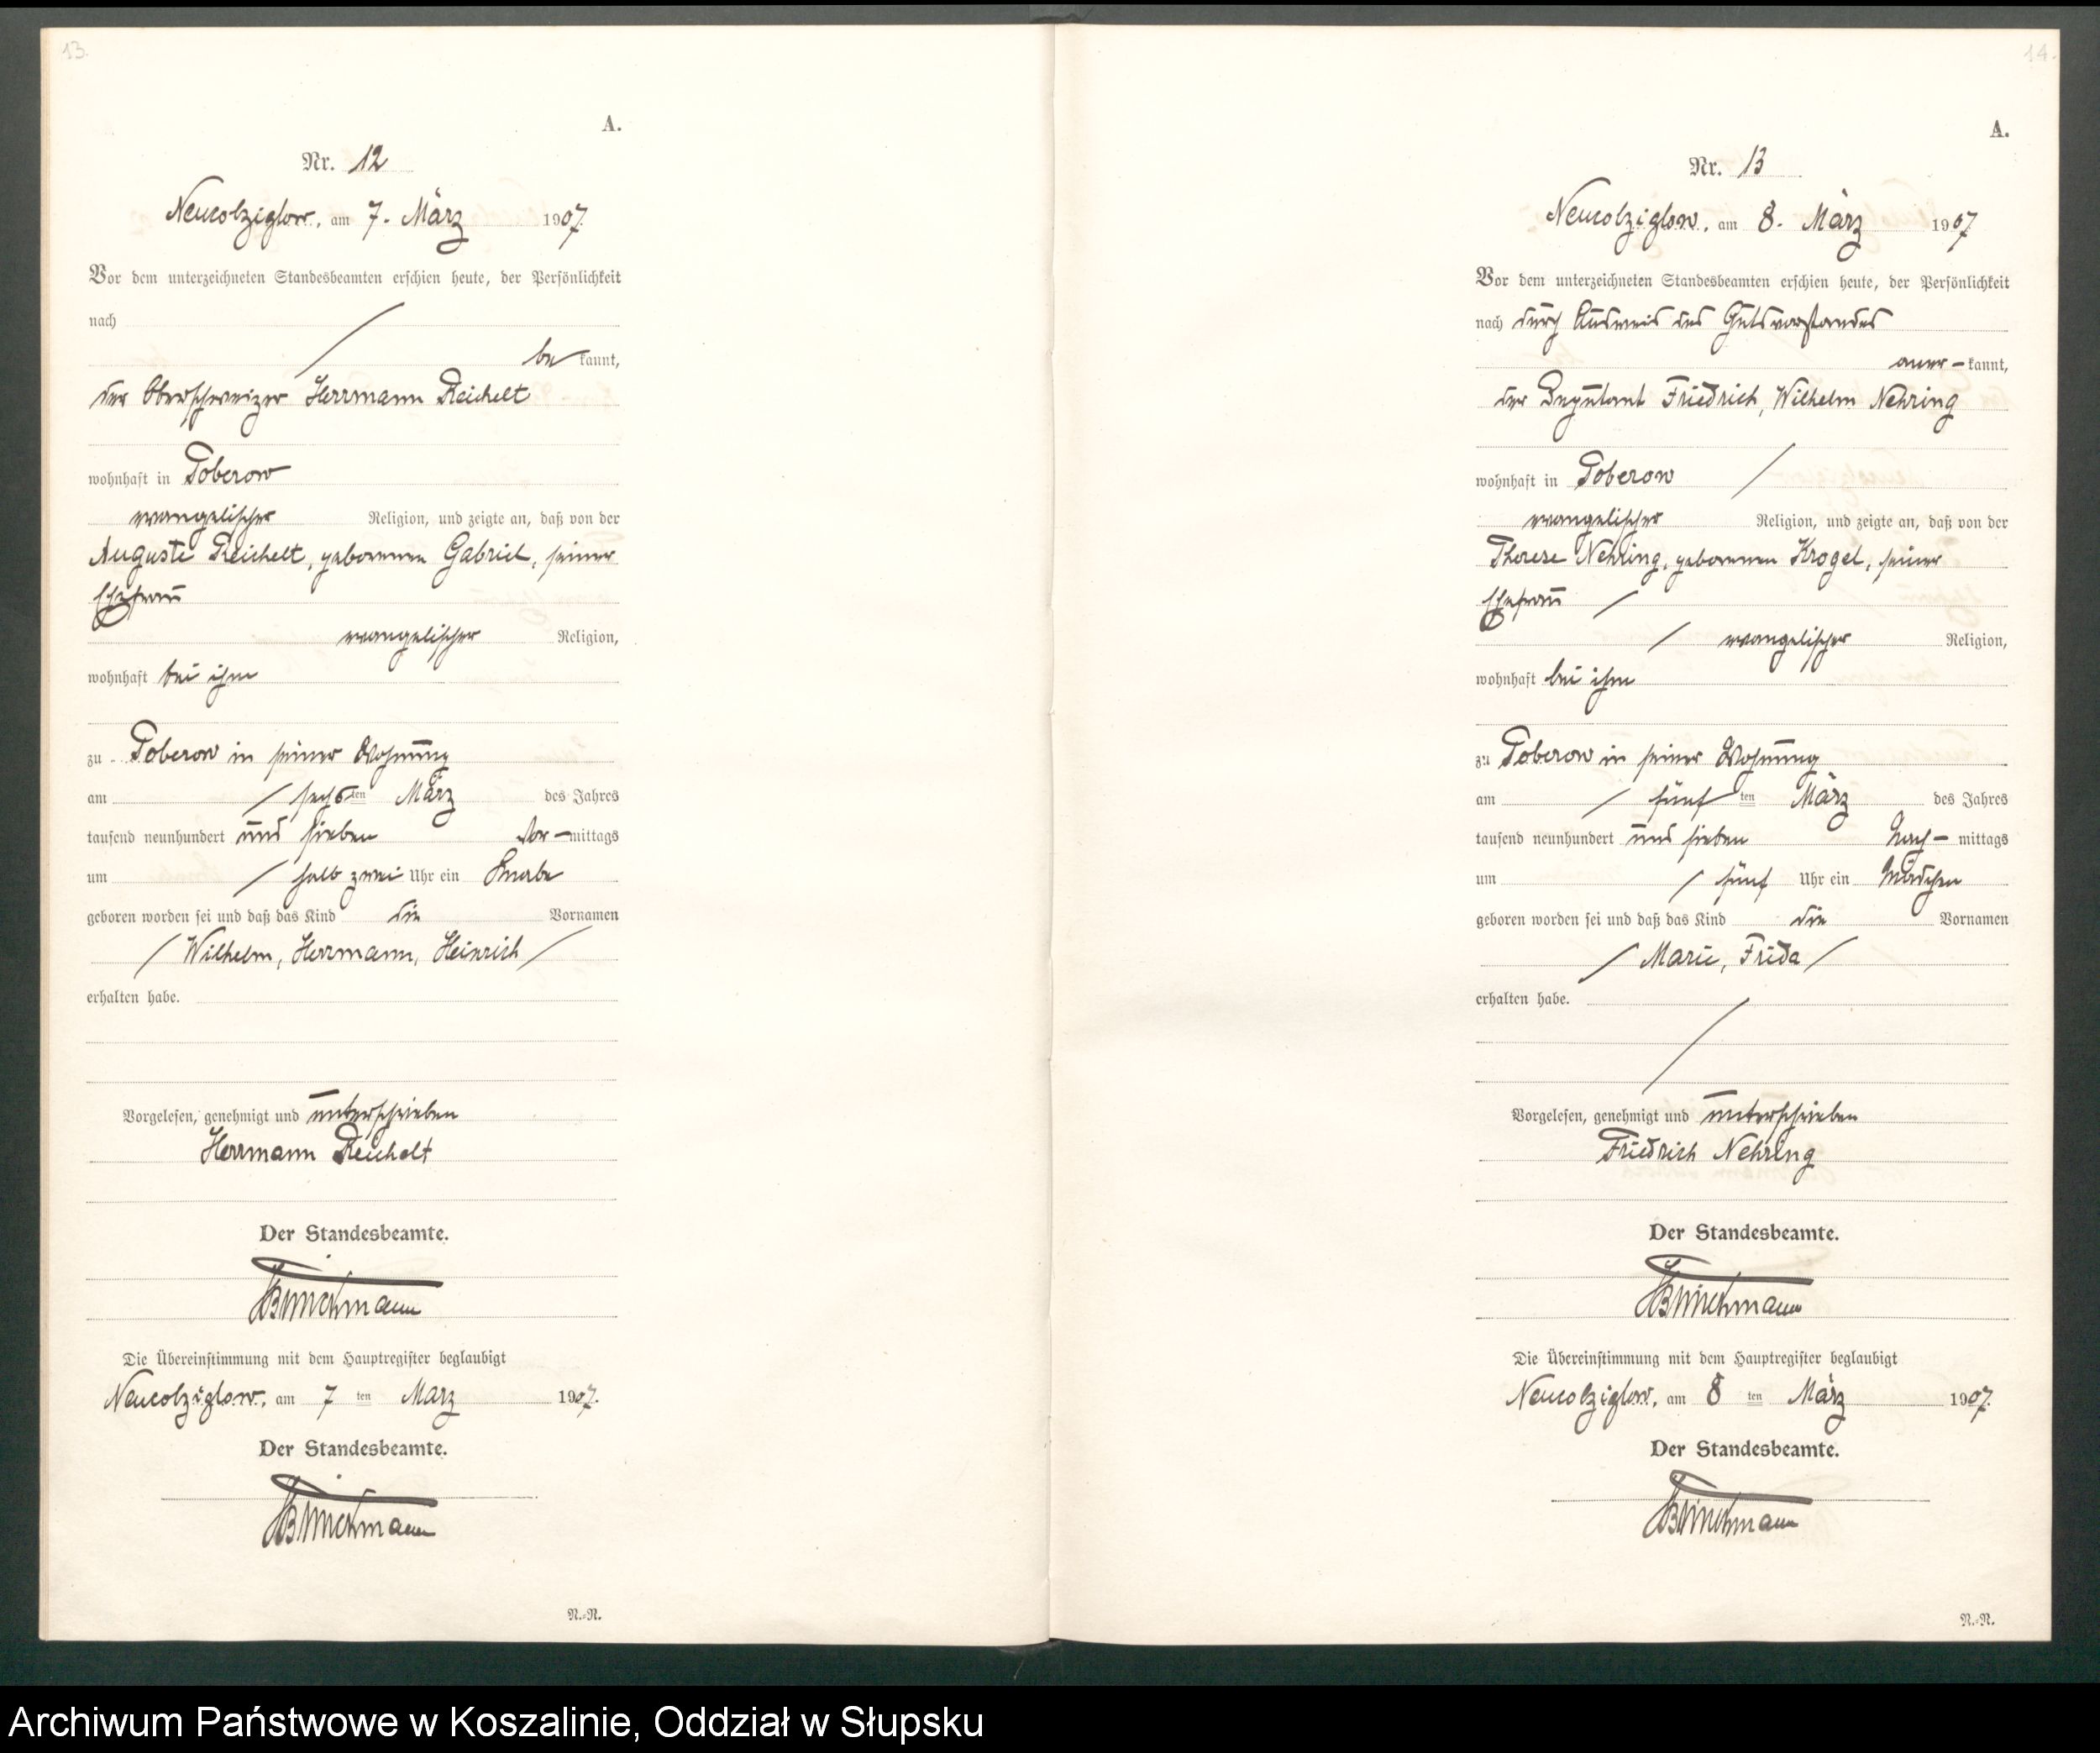 13.
A.
Nr. 12
Neucolziglow, am 7. März 1907.
Vor dem unterzeichneten Standesbeamten erschien heute, der Persönlichkeit
nach
be kannt,
der Oberschweizer Herrmann Reichelt
wohnhaft in Poberow
evangelischer Religion, und zeigte an, daß von der
Auguste Reichelt, geborenen Gabriel, seiner
Ehefrau
evangelischer Religion,
wohnhaft bei ihm
zu Poberow in seiner Wohnung
am sechsten März des Jahres
tausend neunhundert und sieben Vor-mittags
um halb zwei Uhr ein Knabe
geboren worden sei und daß das Kind die Vornamen
Wilhelm, Herrmann, Heinrich
erhalten habe.
Vorgelesen, genehmigt und unterschrieben
Herrmann Reichelt
Der Standesbeamte.
Die Übereinstimmung mit dem Hauptregister beglaubigt
Neucolziglow, am 7 ten März 1907.
Der Standesbeamte.
N.-N.
14.
A.
Nr. 13
Neucolziglow, am 8. März 1907
Vor dem unterzeichneten Standesbeamten erschien heute, der Persönlichkeit
nach durch Ausweis des Gutsvorstandes
aner-kannt,
der Deputant Friedrich, Wilhelm Nehring
wohnhaft in Poberow
evangelischer Religion, und zeigte an, daß von der
Therese Nehring, geborenen Krogel, seiner
Ehefrau
evangelischer Religion,
wohnhaft bei ihm
zu Poberow in seiner Wohnung
am fünf ten März des Jahres
tausend neunhundert und sieben Nach-mittags
um fünf Uhr ein Mädchen
geboren worden sei und daß das Kind die Vornamen
Marie, Frida
erhalten habe.
Vorgelesen, genehmigt und unterschrieben
Friedrich Nehring
Der Standesbeamte.
Die Übereinstimmung mit dem Hauptregister beglaubigt
Neucolziglow, am 8 ten März 1907.
Der Standesbeamte.
N.-N.
Archiwum Państwowe w Koszalinie, Oddział w Słupsku